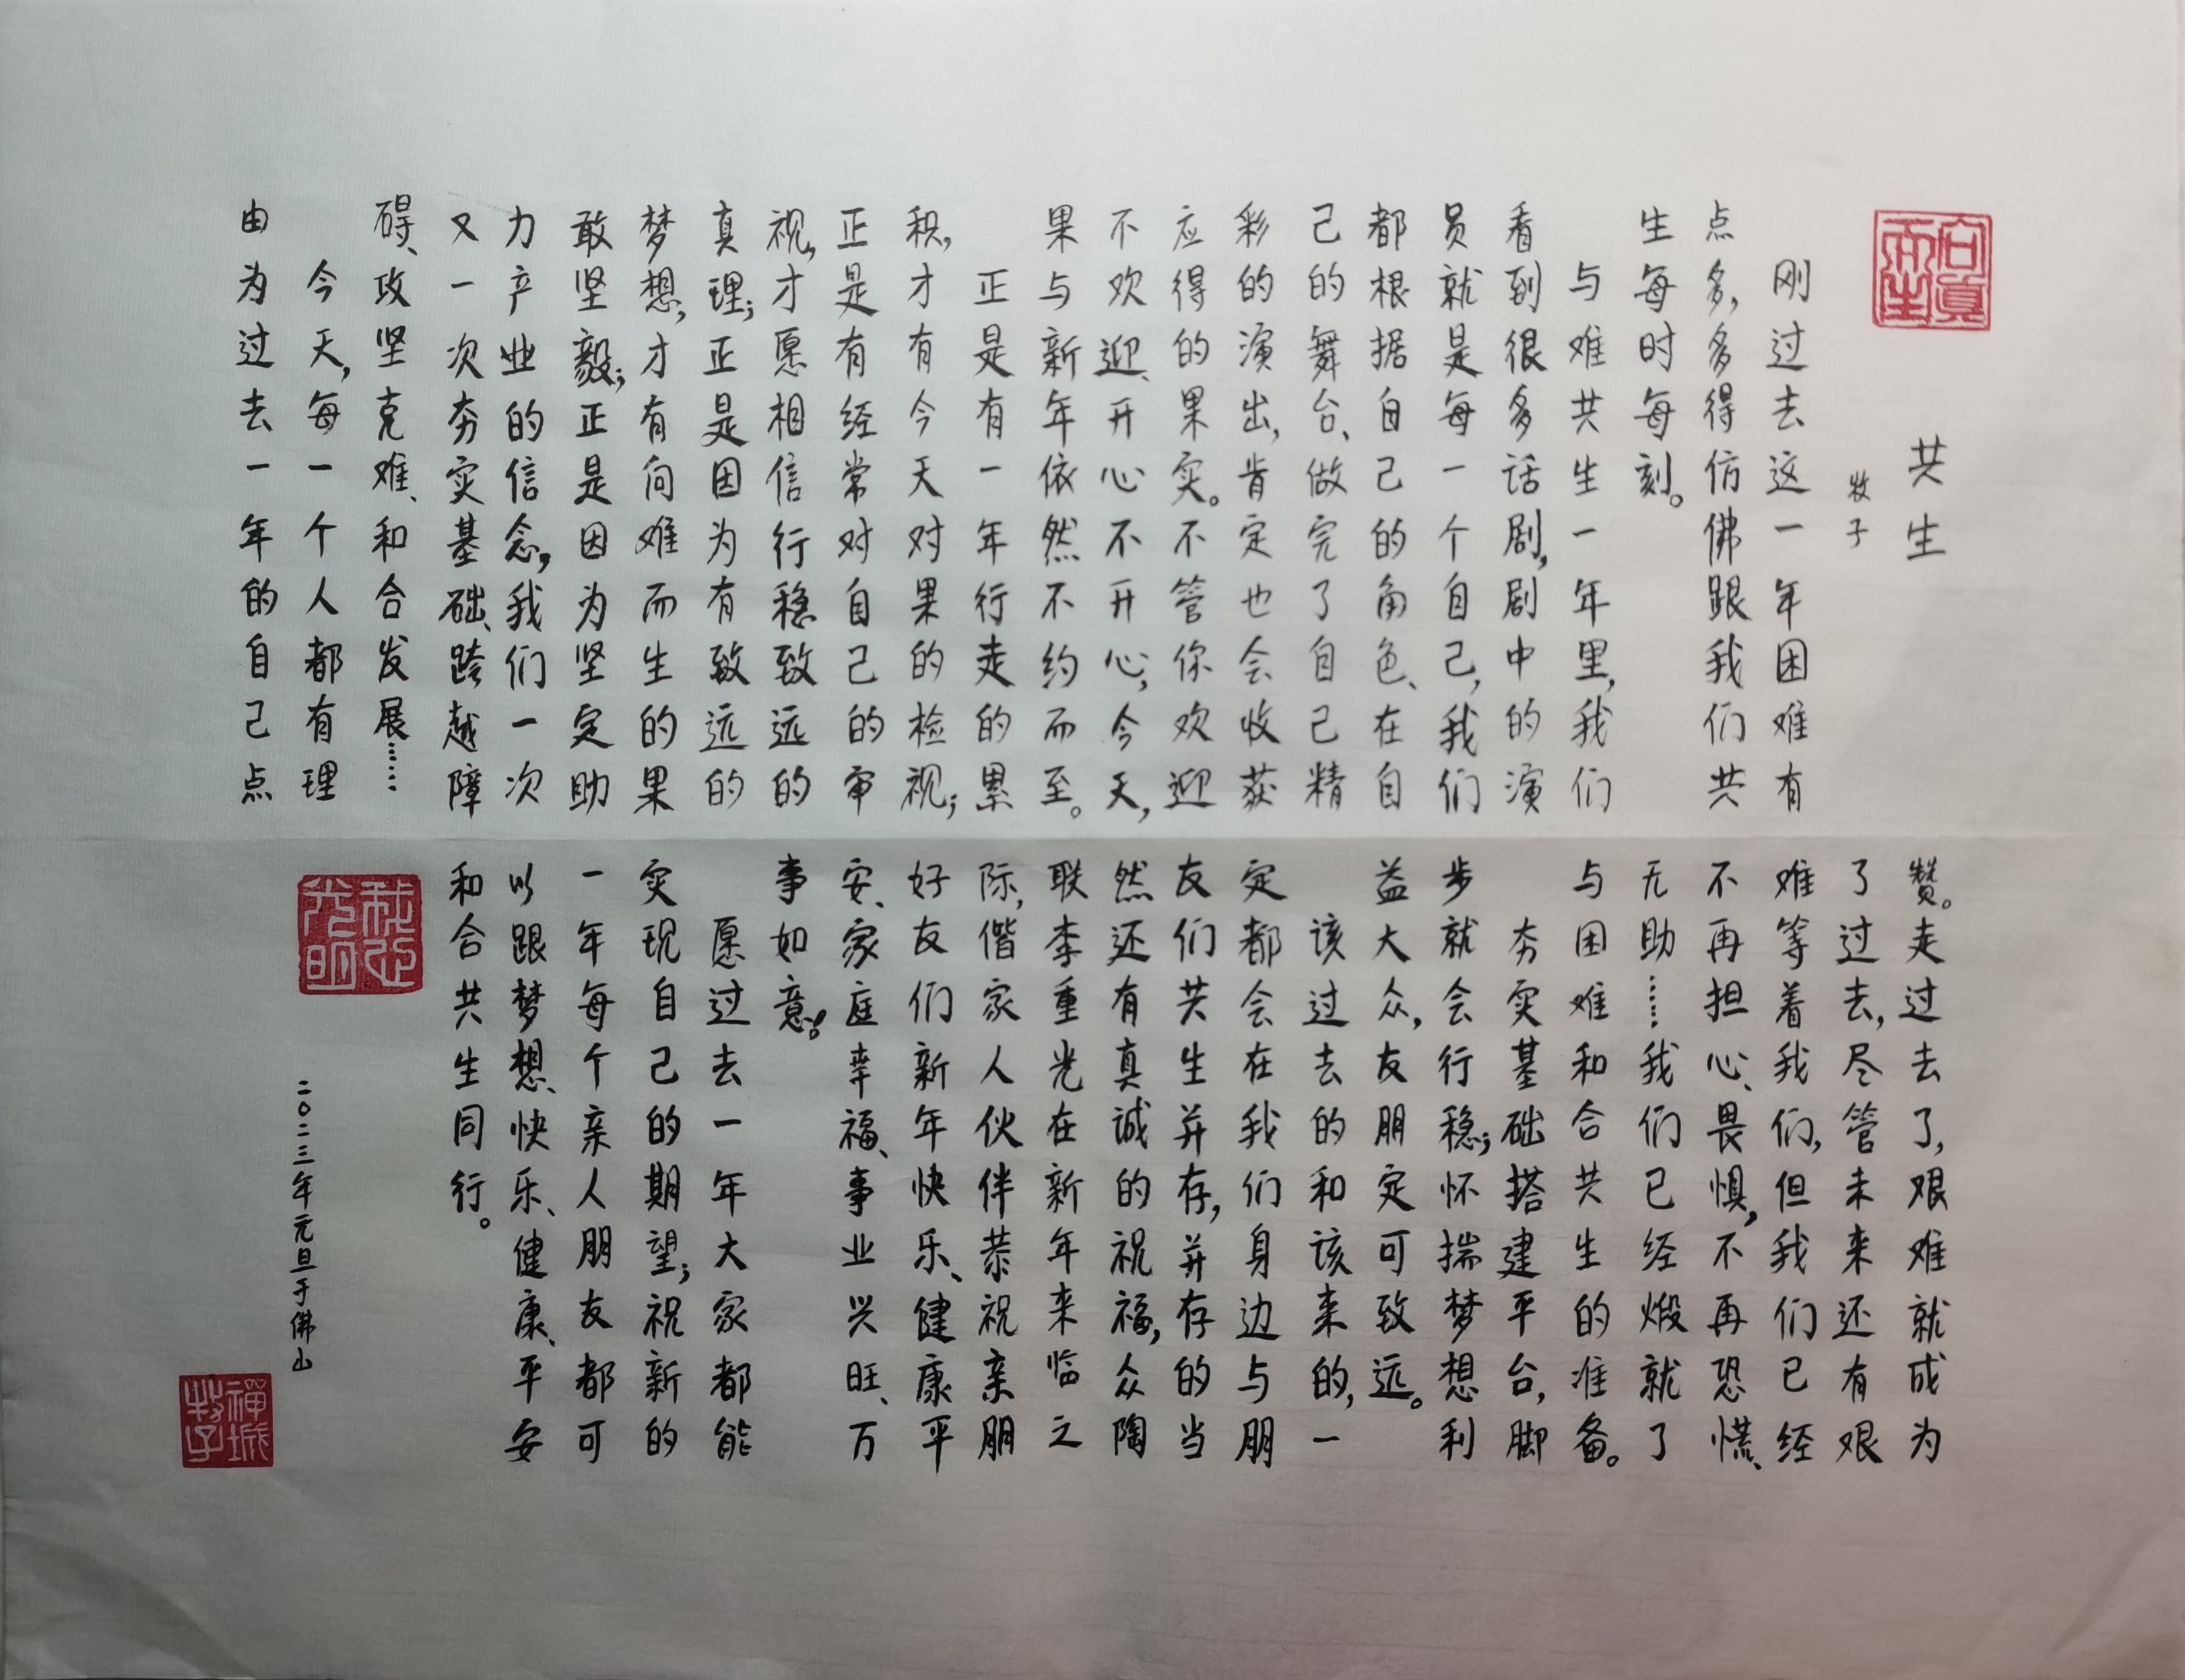 向真而生
共生
牧子
刚过去这一年困难有
点多，多得仿佛跟我们共
生每时每刻。
与难共生一年里，我们
看到很多话剧，剧中的演
员就是每一个自己，我们
都根据自己的角色、在自
己的舞台、做完了自己精
彩的演出，肯定也会收获
应得的果实。不管你欢迎
不欢迎、开心不开心，今天，
果与新年依然不约而至。
正是有一年行走的累
积，才有今天对果的检视；
正是有经常对自己的审
视，才愿相信行稳致远的
真理；正是因为有致远的
梦想，才有向难而生的果
敢坚毅；正是因为坚定助
力产业的信念，我们一次
又一次夯实基础、跨越障
碍、攻坚克难、和合发展……
今天，每一个人都有理
由为过去一年的自己点
赞。走过去了，艰难就成为
了过去，尽管未来还有艰
难等着我们，但我们已经
不再担心、畏惧，不再恐慌、
无助……我们已经煅就了
与困难和合共生的准备。
夯实基础搭建平台，脚
步就会行稳；怀揣梦想利
益大众，友朋定可致远。
该过去的和该来的，一
定都会在我们身边与朋
友们共生并存，并存的当
然还有真诚的祝福，众陶
联李重光在新年来临之
际，偕家人伙伴恭祝亲朋
好友们新年快乐、健康平
安、家庭幸福、事业兴旺、万
事如意！
愿过去一年大家都能
实现自己的期望；祝新的
一年每个亲人朋友都可
以跟梦想、快乐、健康、平安
和合共生同行。
二〇二三年元旦于佛山
禅城牧子